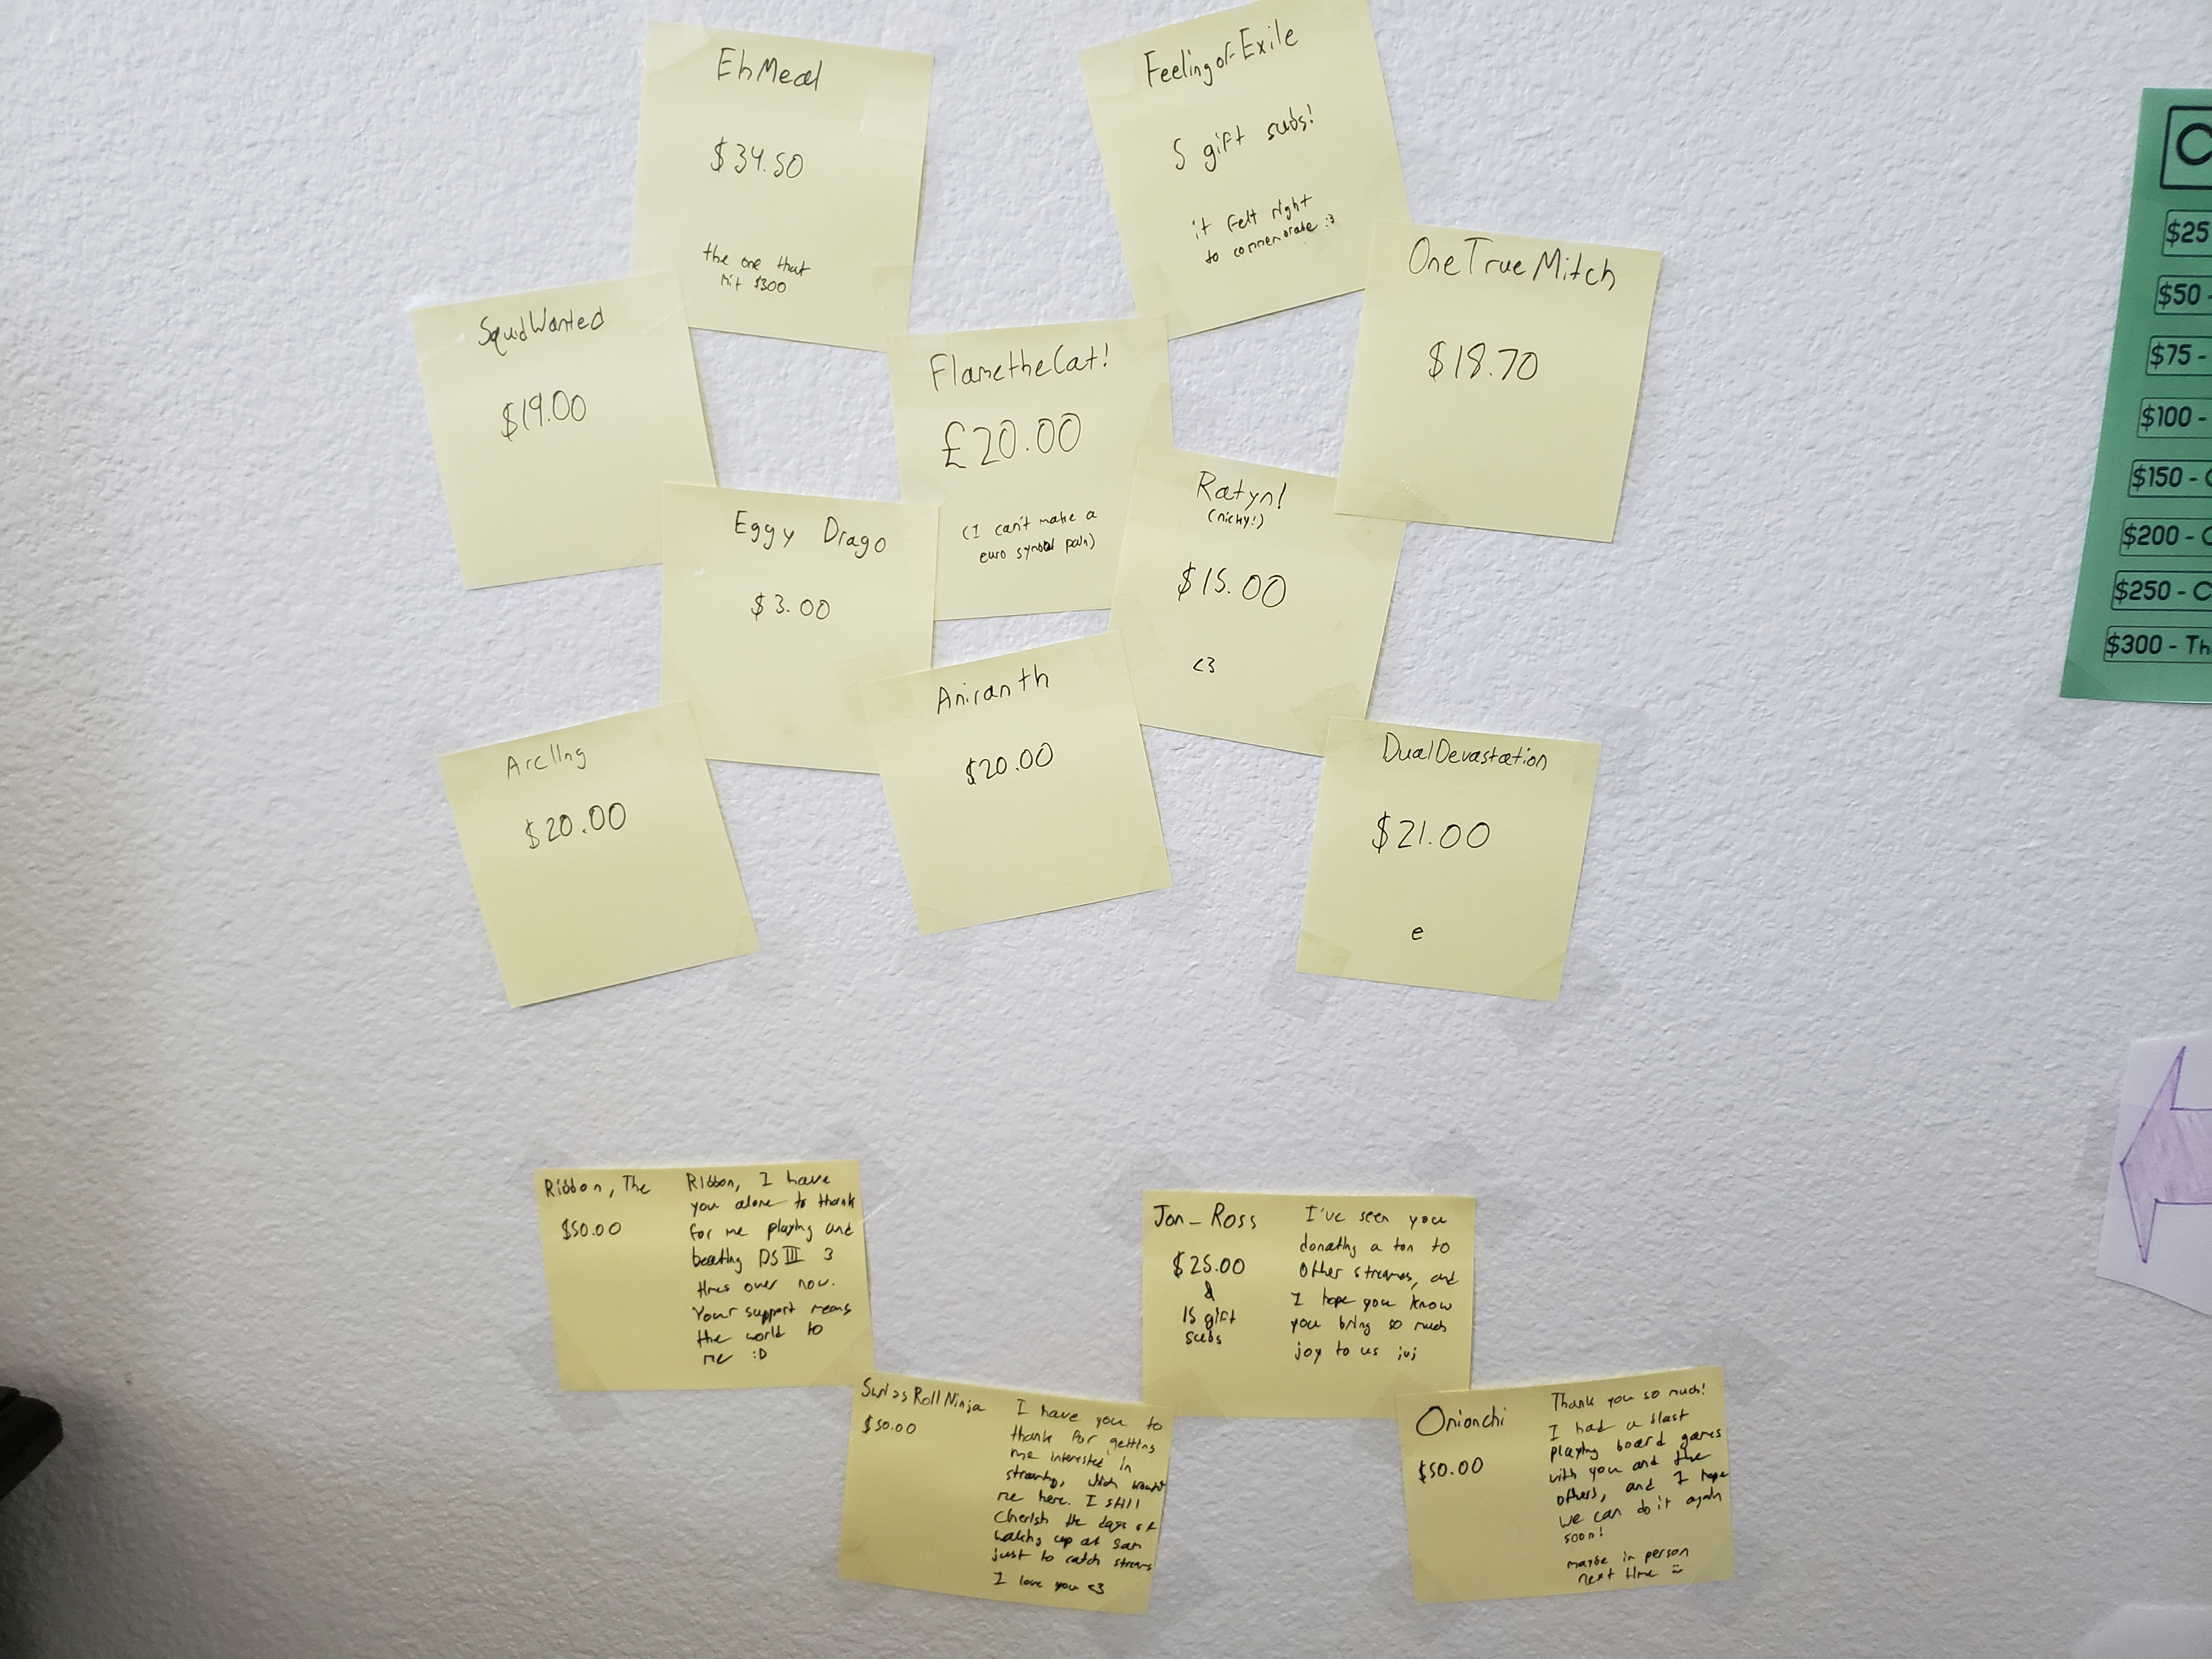 EhMeal
$34.50
the one that
hit $300
FeelingofExile
5 gift subs!
it felt right
to commemorate :3
OneTrueMitch
$18.70
SquidWanted
$19.00
FlametheCat!
£20.00
(I can't make a
euro symbol pain)
Ratyn!
(nicky!)
$15.00
<3
Eggy Drago
$3.00
Aniranth
$20.00
Arcllng
$20.00
DualDevastation
$21.00
e
Ribbon, The
$50.00
Ribbon, I have
you alone to thank
for me playing and
beating DS III 3
times over now.
Your support means
the world to
me :D
Jon_Ross
$25.00
&
15 gift
subs
I've seen you
donating a ton to
other streams, and
I hope you know
you bring so much
joy to us ;u;
SwissRollNinja
$50.00
I have you to
thank for getting
me interested in
streaming, which brought
me here. I still
cherish the days of
waking up at 5am
just to catch streams
I love you <3
Onionchi
$50.00
Thank you so much!
I had a blast
playing board games
with you and the
others, and I hope
we can do it again
soon!
maybe in person
next time
C
$25
$50 -
$75 -
$100 -
$150 - C
$200 - C
$250 - C
$300 - Th